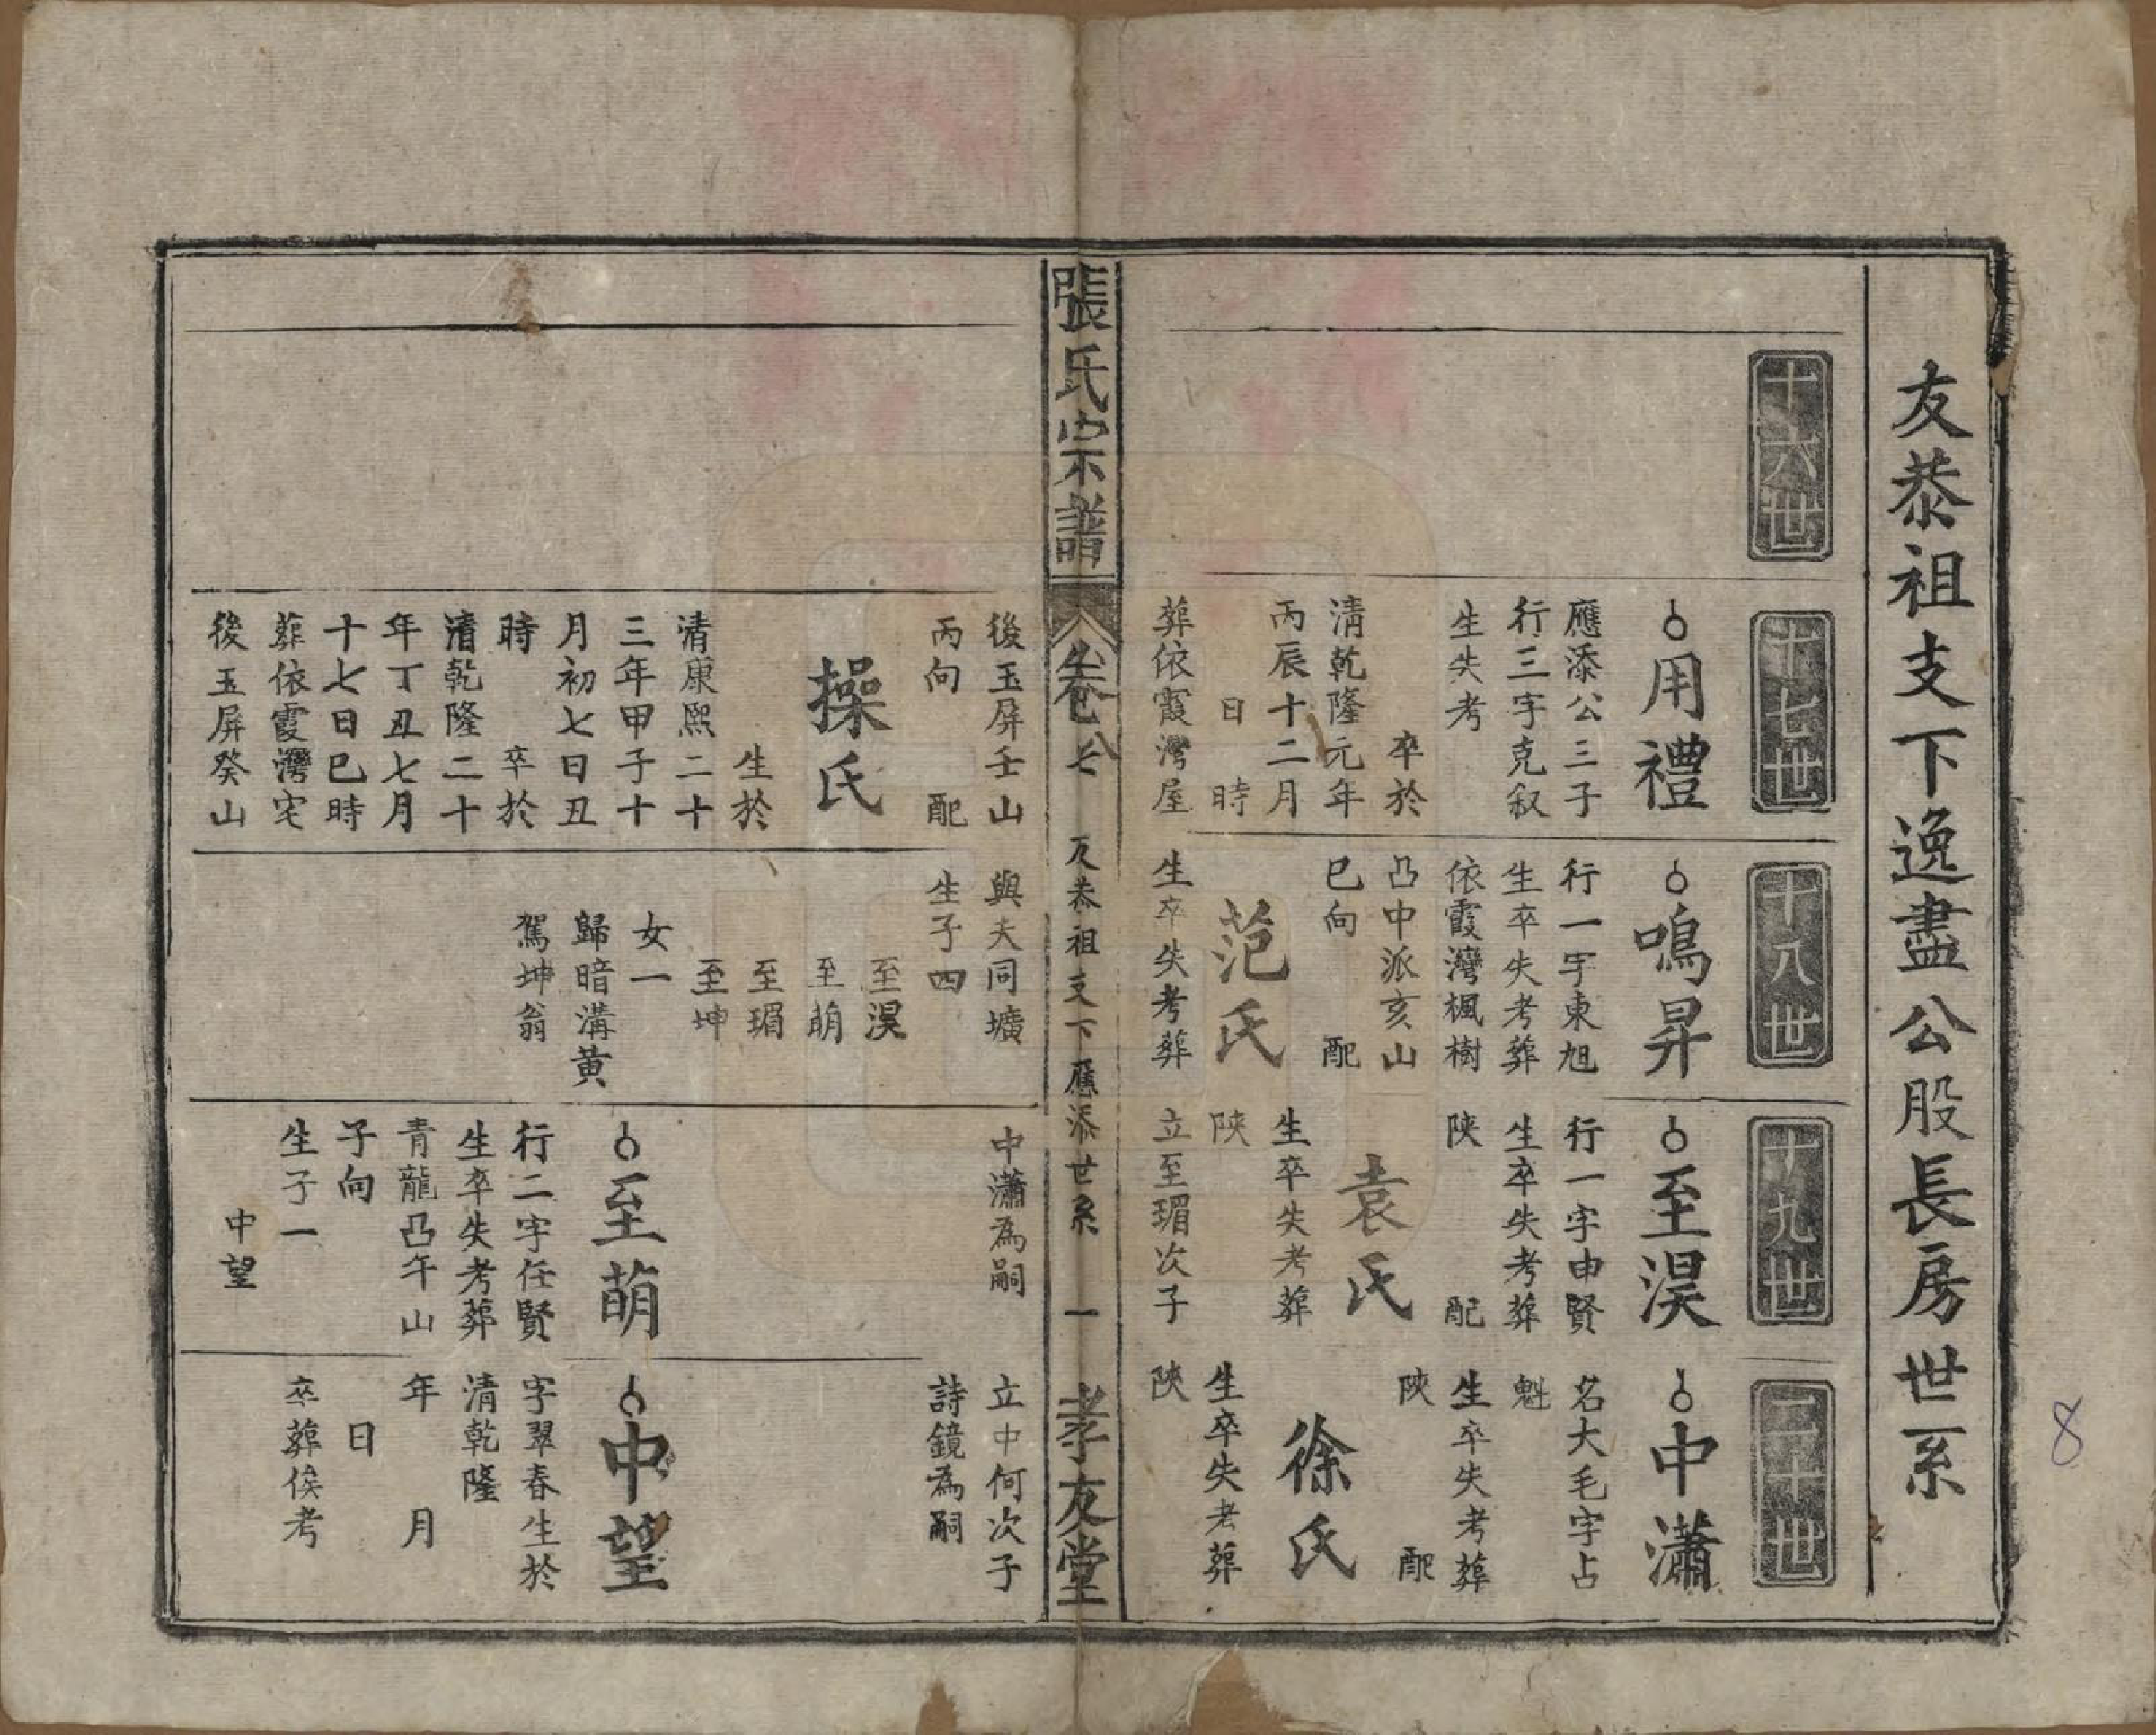 友恭祖支下逸盡公股長房世系
十六世
十七世
用禮
應添公三子
行三字克叙
生失考
卒於
清乾隆元年
丙辰十二月
日 時
葬依霞灣屋
十八世
鳴昇
行一字東旭
生卒失考葬
依霞灣楓樹
凸中派亥山
巳向 配
范氏
生卒失考葬
十九世
至淏
行一字申賢
生卒失考葬
陝 配
袁氏
生卒失考葬
陝
立至瑂次子
二十世
中瀟
名大毛字占
魁
生卒失考葬
陝 配
徐氏
生卒失考葬
陝
張氏宗譜
卷七
友恭祖支下應添世系 一
孝友堂
後玉屏壬山
丙向 配
操氏
生於
清康熙二十
三年甲子十
月初七日丑
時 卒於
清乾隆二十
年丁丑七月
十七日巳時
葬依霞灣宅
後玉屏癸山
與夫同壙
生子四
至淏
至萌
至瑂
至坤
女一
歸暗溝黃
駕坤翁
中瀟為嗣
至萌
行二字任賢
生卒失考葬
青龍凸午山
子向
生子一
中望
立中何次子
詩鏡為嗣
中望
字翠春生於
清乾隆
年 月
日
卒葬俟考
8